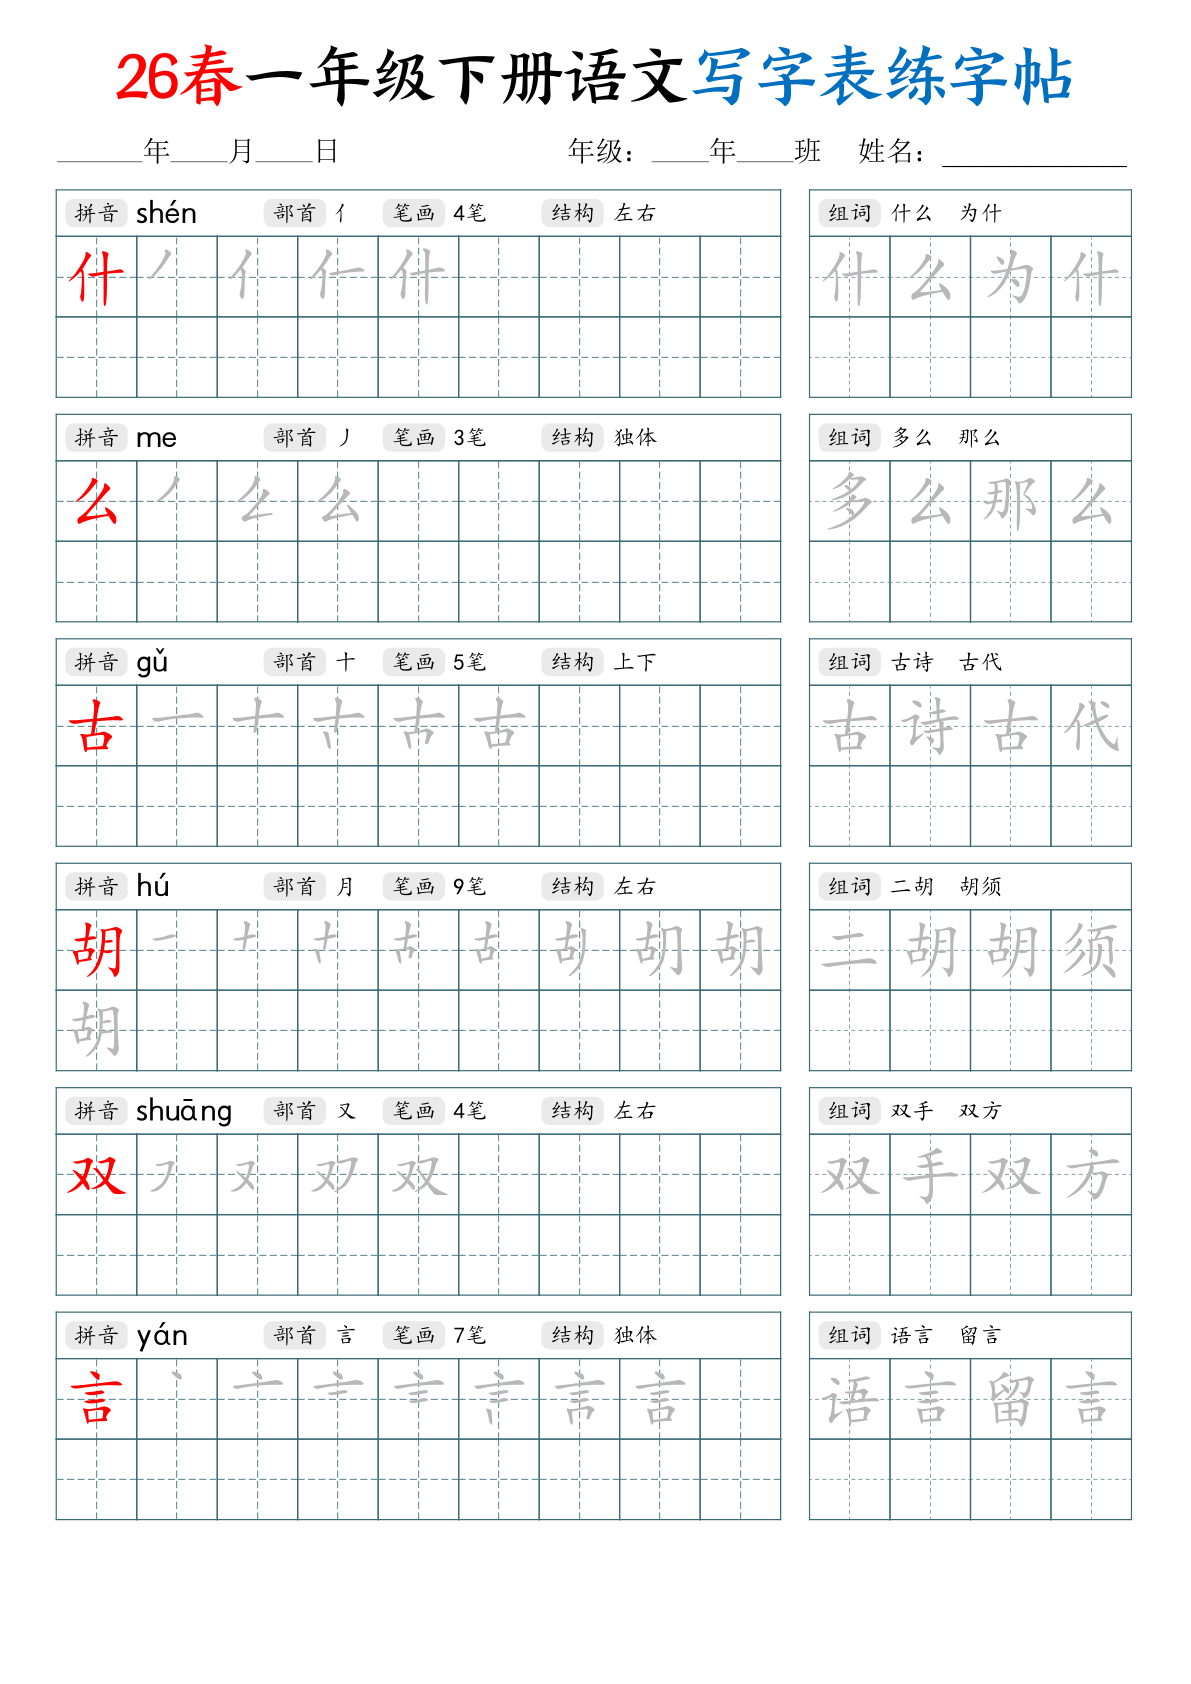 26春一年级下册语文写字表练字帖
______年____月____日 年级：____年____班 姓名：_____________
拼音 shén 部首 亻 笔画 4笔 结构 左右 组词 什么 为什
什 丿 亻 什 什 什么为什
拼音 me 部首 丿 笔画 3笔 结构 独体 组词 多么 那么
么 丿 么 多么那么
拼音 gǔ 部首 十 笔画 5笔 结构 上下 组词 古诗 古代
古 一 十 古 古 古诗古代
拼音 hú 部首 月 笔画 9笔 结构 左右 组词 二胡 胡须
胡 一 十 古 胡 胡 二胡胡须
胡
拼音 shuāng 部首 又 笔画 4笔 结构 左右 组词 双手 双方
双 フ 又 双 双手双方
拼音 yán 部首 言 笔画 7笔 结构 独体 组词 语言 留言
言 丶 亠 言 语言留言